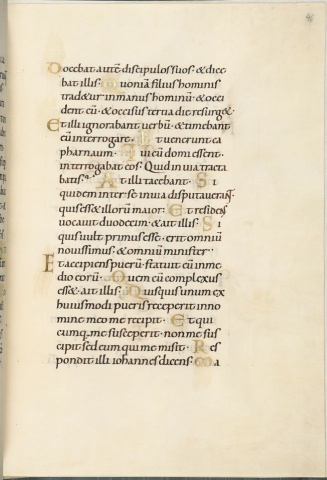 46
Docebat autē discipulos suos · & dice
bat illis · Quoniā filius hominis
trad&ur in manus hominū · & occi
dent eū · & occisus tertia die resurg& ·
Et illi ignorabant uerbū · & timebant
eū interrogare · Et uenerunt ca
pharnaum · Qui cū domi essent ·
interrogabat eos · Quid in uia tracta
batis · At illi tacebant · Si
quidem inter se in uia disputauerant ·
quis ess& illorū maior · Et residens
uocauit duodecim · & ait illis · Si
quis uult primus esse · erit omniū
nouissimus · & omniū minister ·
Et accipiens puerū · statuit eū in me
dio eorū · Quem cū complexus
ess& · ait illis · Quisquis unum ex
huiusmodi pueris receperit in no
mine meo me recipit · Et qui
cumq, me susceperit · non me sus
cipit sed eum qui me misit · Res
pondit illi iohannes dicens · Ma